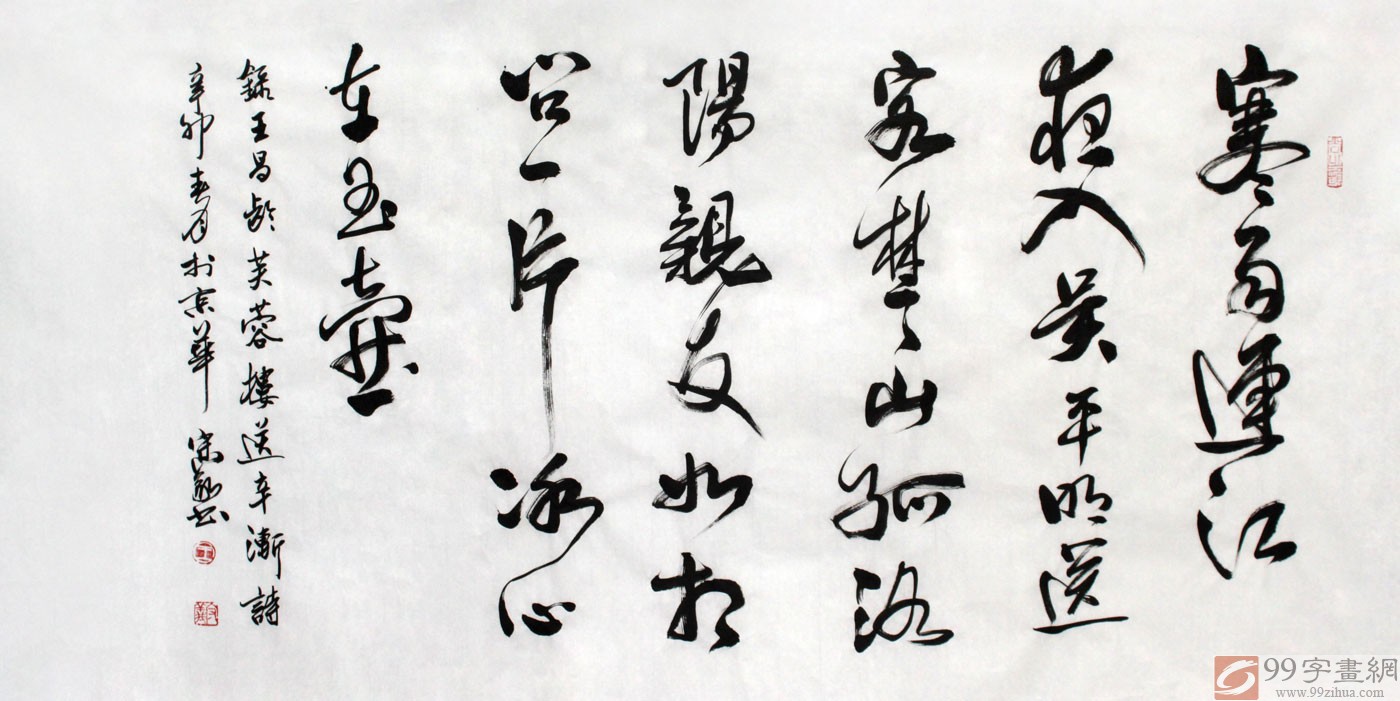 寒雨連江
夜入吳平明送
客楚山孤洛
陽親友如相
問一片冰心
在玉壺
錄王昌齡芙蓉樓送辛漸詩
辛卯春月於京華 宋
99字畫網
www.99zihua.com